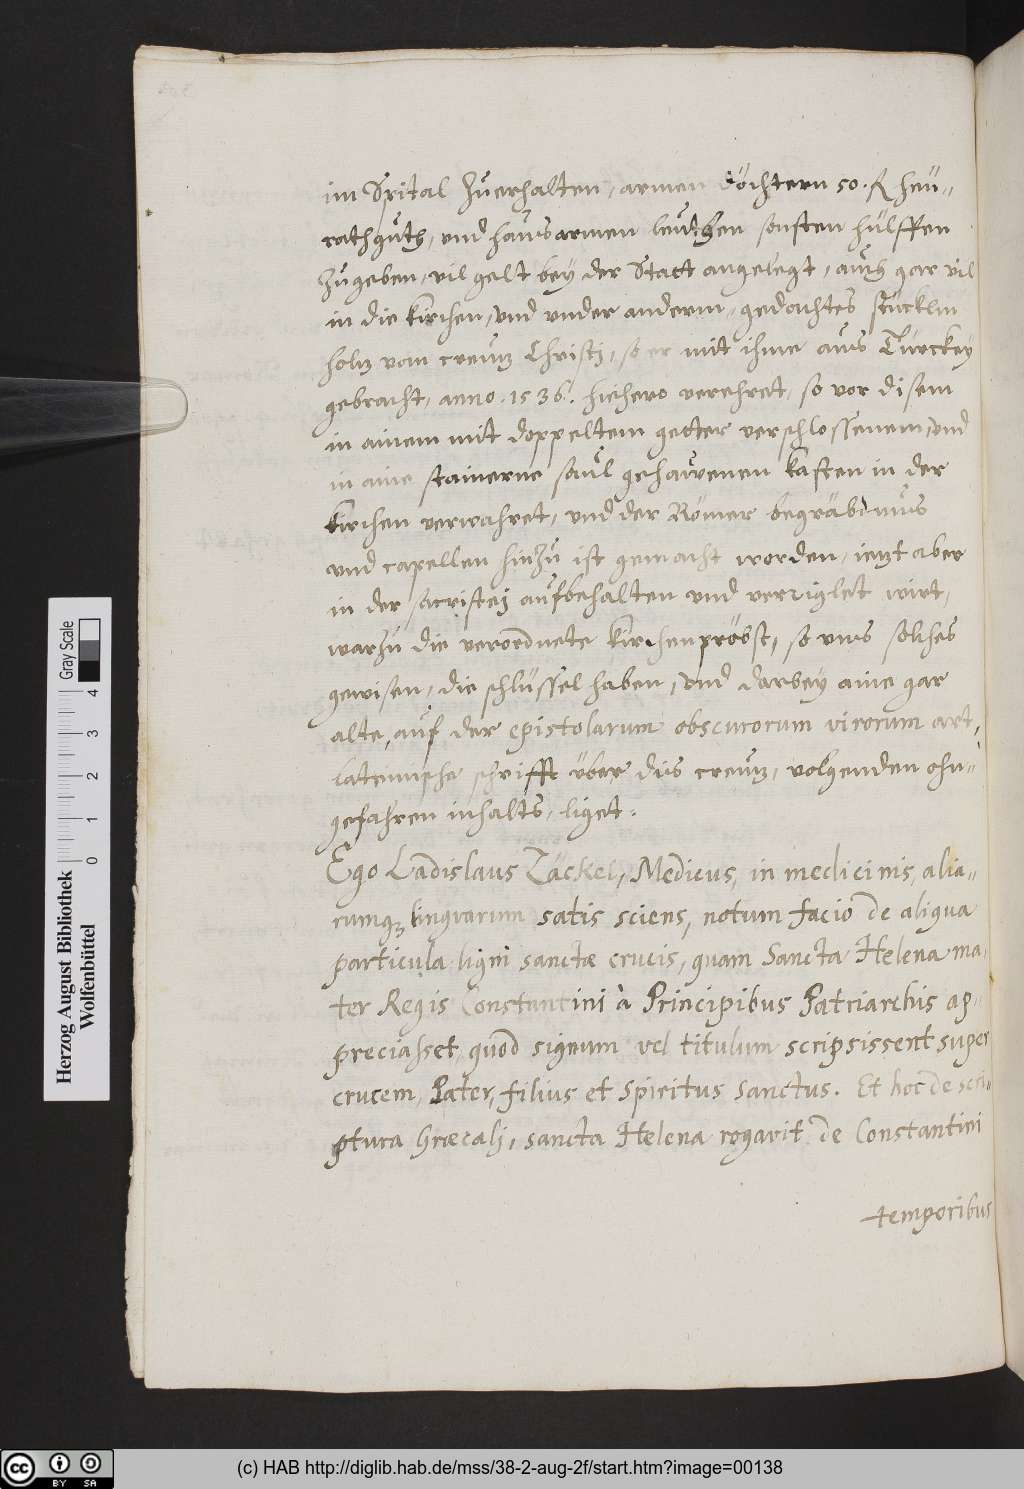 im Spital zu erhalten, armen Döchtern 50. fl heü-
rathguth, und hausarmen leuthen sonsten hülffen
zugeben, vil gelt bey der Statt angelegt, auch gar vil
in die Kirchen, und under anderm, gedachtes stücklin
holtz vom creutz Christi, so er mit ihme aus Türckey
gebracht, anno. 1536. hiehero verehret, so vor disem
in ainem mit doppeltem getter verschlossenem, und
in aine stainerne saul gehawenen Kasten in der
Kirchen verwahret, und der Römer begräbdnus
und capellen hinzu ist gemacht worden, ietzt aber
in der sacristej aufbehalten und verriglet wirt,
warzu die verordnete Kirchenpröbst, so uns solches
gewisen, die schlüssel haben, und darbey aine gar
alte, auf der epistolarum obscurorum virorum art,
lateinische schrifft über dis creutz, volgenden ohn-
gefahren inhalts, liget:
Ego Ladislaus Täckel, Medicus, in medicinis, alia-
rumq; linguarum satis sciens, notum facio de aliqua
particula ligni sanctæ crucis, quam Sancta Helena ma-
ter Regis Constantini à Principibus Patriarchis ap-
preciasset, quod signum vel titulum scripsissent super
crucem, Pater, filius et Spiritus Sanctus. Et hoc de scri-
ptura Græcalj, sancta Helena rogavit de Constantini
temporibus
Herzog August Bibliothek
Wolfenbüttel
0 1 2 3 4
Gray Scale
cc BY SA
(c) HAB http://diglib.hab.de/mss/38-2-aug-2f/start.htm?image=00138